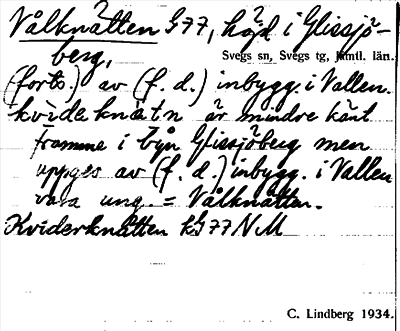 Vålknätten G77, höjd i Glissjö-
berg,
Svegs sn, Svegs tg, Jämtl. län.
(forts.) av (f. d.) inbygg. i Vallen.
kvideknätn är mindre känt
framme i byn Glissjöberg men
uppges av (f. d.) inbygg. i Vallen
vara ung. = Vålknätten.
Kviderknätten kG77NM
C. Lindberg 1934.